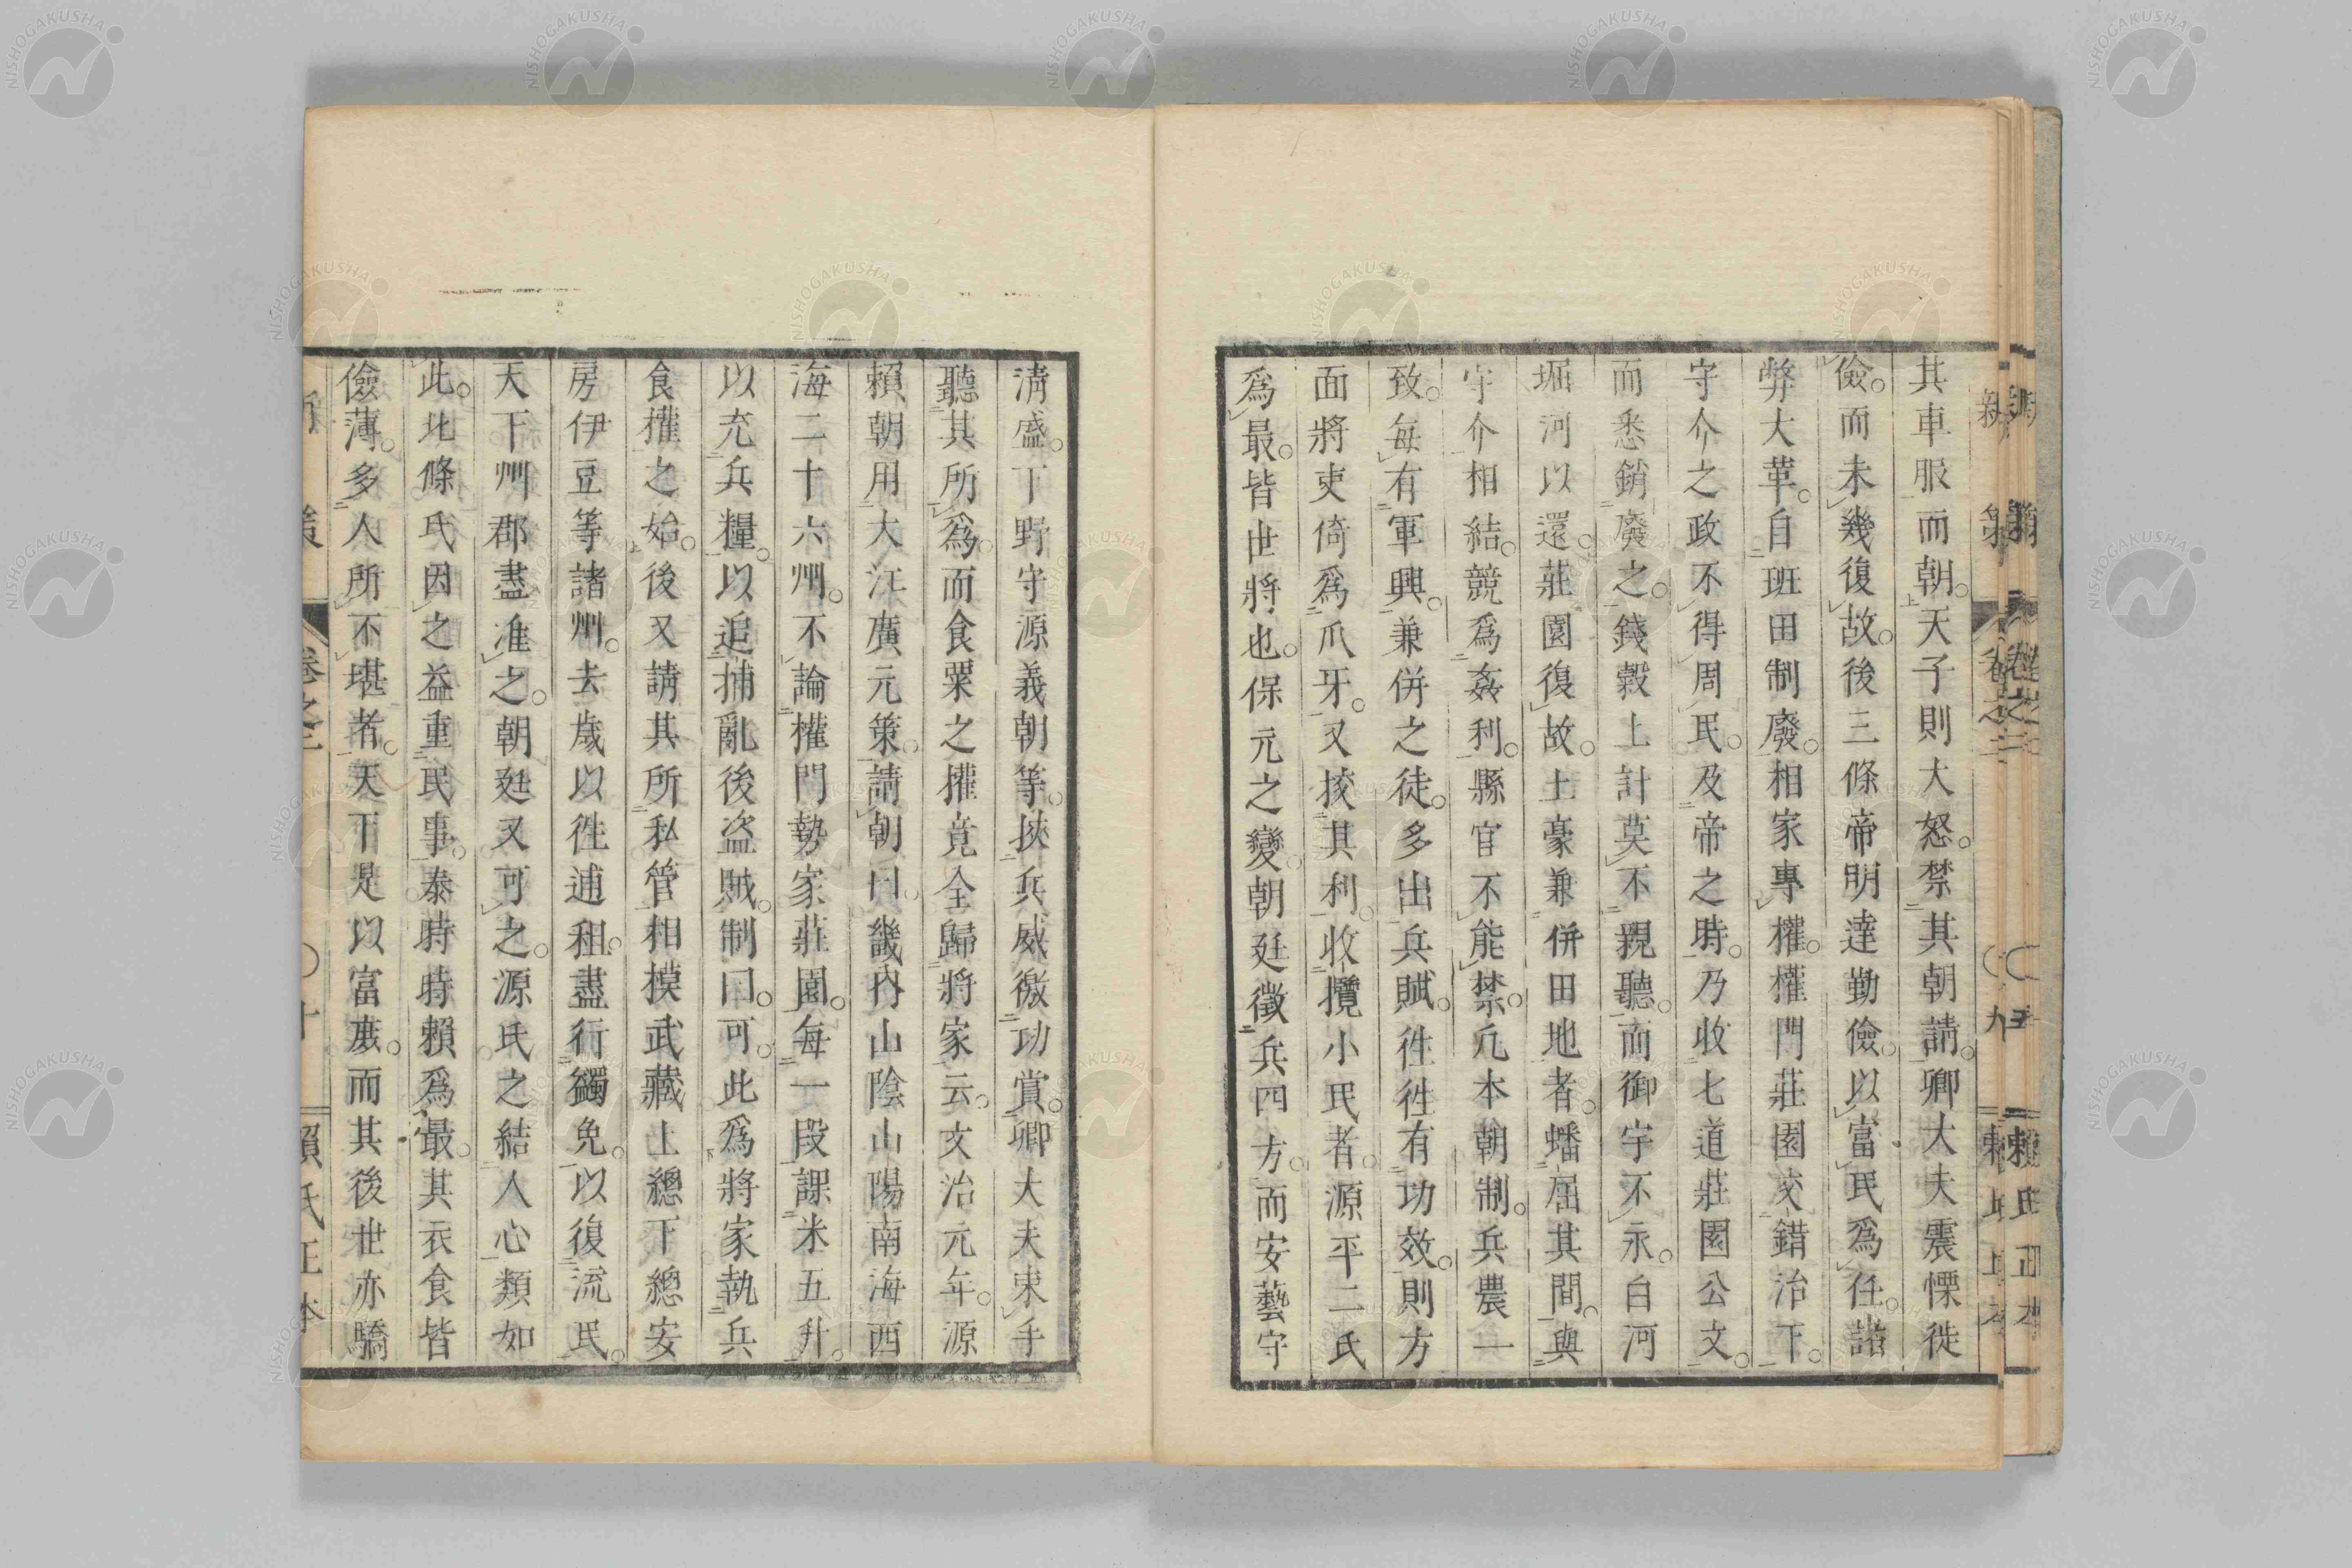 其車服而朝。天子則大怒。禁其朝請。卿大夫震慄徙
儉。而未幾復故。後三條帝明達勤儉。以富民爲任。諸
弊大革。自班田制廢。相家專權。權門莊園交錯治下。
守介之政不得周民。及帝之時。乃收七道莊園公文。
而悉銷廢之。錢穀上計莫不親聽。而御宇不永。白河
堀河以還。莊園復故。土豪兼併田地者。蟠屈其間。與
守介相結。競爲姦利。縣官不能禁。凡本朝制。兵農一
致。每有軍興。兼併之徒。多出兵賦。徃徃有功效。則方
面將吏倚爲爪牙。又挍其利。收攬小民者。源平二氏
爲最。皆世將也。保元之變。朝廷徵兵四方。而安藝守
清盛。下野守源義朝等。挾兵威徼功賞。卿大夫束手
聽其所爲。而食粟之權竟全歸將家云。文治元年。源
賴朝用大江廣元策。請朝曰。畿內山陰山陽南海西
海二十六州。不論權門勢家莊園。每一段課米五升。
以充兵糧。以追捕亂後盜賊。制曰。可。此爲將家執兵
食權之始。後又請其所私管相模武藏上總下總安
房伊豆等諸州。去歲以徃逋租。盡行蠲免。以復流民。
天下州郡盡准之。朝廷又可之。源氏之結人心類如
此。北條氏因之益重民事。泰時時賴爲最。其衣食皆
儉薄。多人所不堪者。天下是以富庶。而其後世亦驕
新策 卷之二 九
賴氏正本